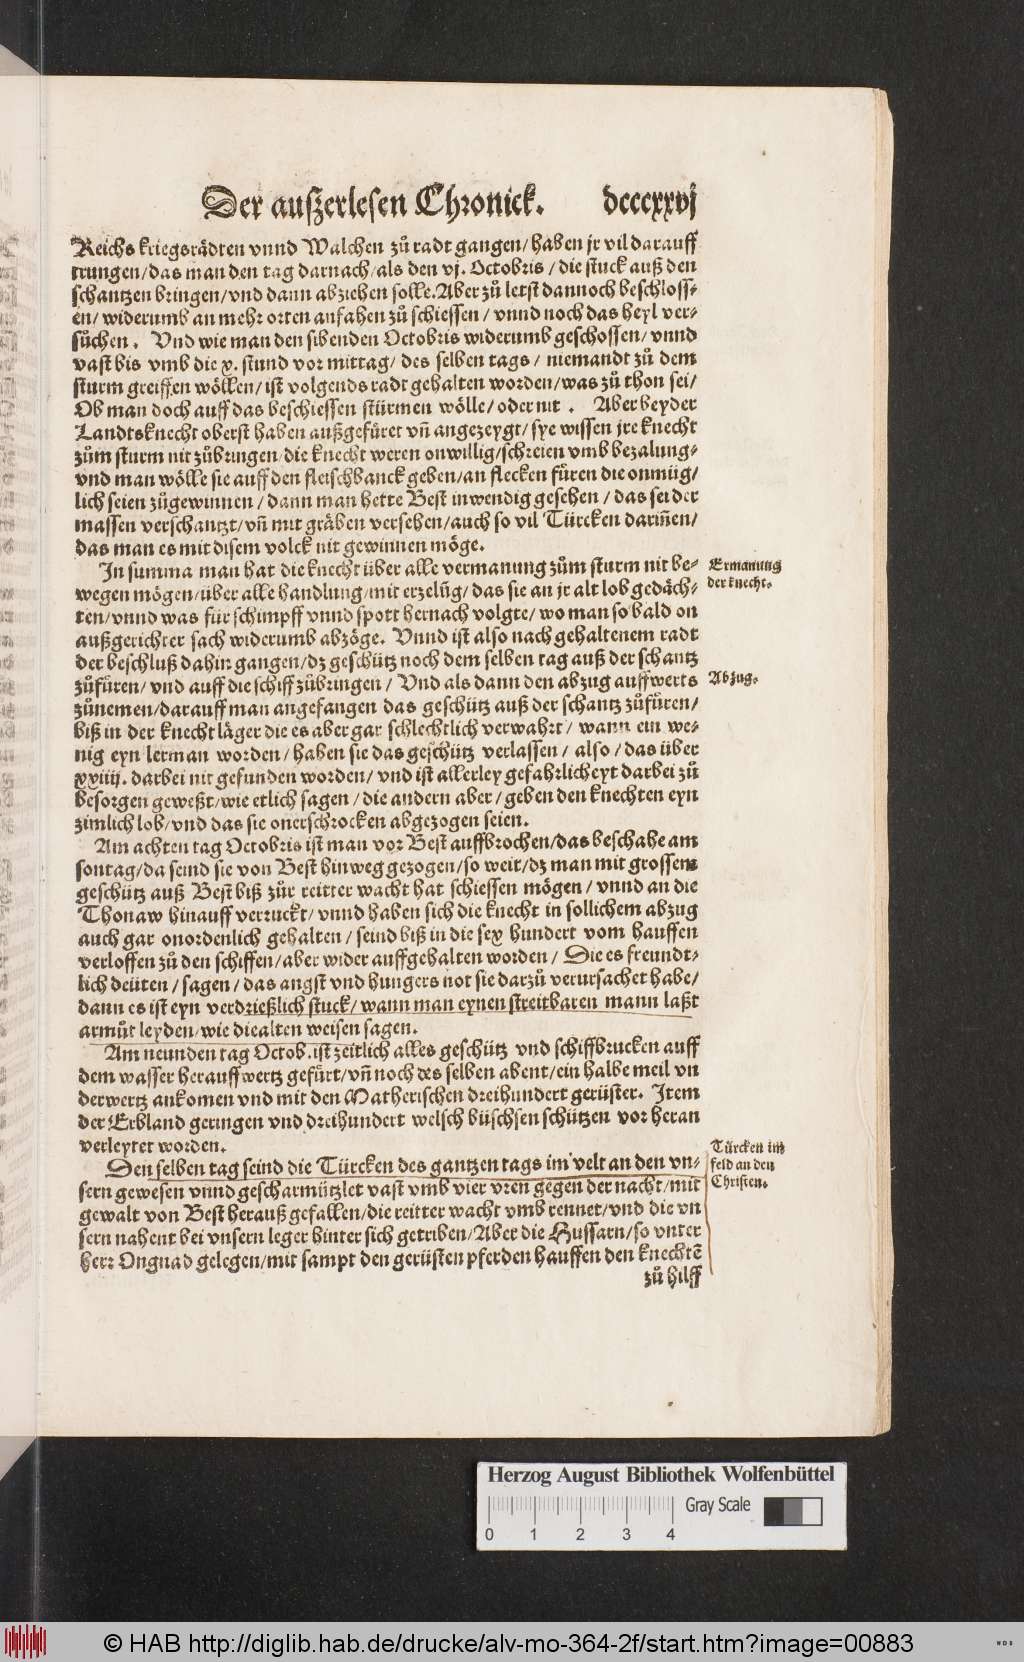 Der auszerlesen Chronick. dccccxxvj
Reichs kriegsrädten vnnd Walchen zů radt gangen/ haben jr vil darauff
trungen/ das man den tag darnach/ als den vj. Octobris / die stuck auß den
schantzen bringen/ vnd dann abziehen solle. Aber zů letst dannoch beschloss-
en/ widerumb an mehr orten anfahen zů schiessen / vnnd noch das heyl ver-
sůchen . Vnd wie man den sibenden Octobris widerumb geschossen/ vnnd
vast bis vmb die x. stund vor mittag/ des selben tags / niemandt zů dem
sturm greiffen wöllen/ ist volgends radt gehalten worden/ was zů thon sei/
Ob man doch auff das beschiessen stürmen wölle/ oder nit . Aber beyder
Landtsknecht oberst haben außgefüret vñ angezeygt/ sye wissen jre knecht
zům sturm nit zůbringen/ die knecht weren onwillig/ schreien vmb bezalung-
vnd man wölle sie auff den fleischbanck geben/ an flecken fůren die onmüg/
lich seien zůgewinnen / dann man hette Best inwendig gesehen / das sei der
massen verschantzt/ vñ mit gräben versehen/ auch so vil Türcken dariñen/
das man es mit disem volck nit gewinnen möge.
In summa man hat die knecht über alle vermanung zům sturm nit be-
wegen mögen/ über alle handlung/ mit erzelũg/ das sie an jr alt lob gedäch-
ten/ vnnd was für schimpff vnnd spott hernach volgte/ wo man so bald on
außgerichter sach widerumb abzöge. Vnnd ist also nach gehaltenem radt
der beschluß dahin gangen/ dz geschütz noch dem selben tag auß der schantz
zůfůren/ vnd auff die schiff zůbringen / Vnd als dann den abzug auffwerts
zůnemen/ darauff man angefangen das geschütz auß der schantz zůfůren/
biß in der knecht läger die es aber gar schlechtlich verwahrt / wann ein we-
nig eyn lerman worden/ haben sie das geschütz verlassen / also / das über
xxiiij. darbei nit gefunden worden/ vnd ist allerley gefahrlicheyt darbei zů
besorgen geweßt/ wie etlich sagen / die andern aber / geben den knechten eyn
zimlich lob/ vnd das sie onerschrocken abgezogen seien.
Am achten tag Octobris ist man vor Best auffbrochen/ das beschahe am
sontag/ da seind sie von Best hinweg gezogen/ so weit/ dz man mit grossem
geschütz auß Best biß zůr reitter wacht hat schiessen mögen / vnnd an die
Thonaw hinauff verruckt/ vnnd haben sich die knecht in sollichem abzug
auch gar onordenlich gehalten / seind biß in die sex hundert vom hauffen
verloffen zů den schiffen/ aber wider auffgehalten worden / Die es freundt-
lich deüten / sagen / das angst vnd hungers not sie darzů verursachet habe/
dann es ist eyn verdrießlich stuck / wann man eynen streitbaren mann laßt
armůt leyden/ wie die alten weisen sagen.
Am neunden tag Octob. ist zeitlich alles geschütz vnd schiffbrucken auff
dem wasser herauffwertz gefürt/ vñ noch des selben abent/ ein halbe meil vn
derwertz ankomen vnd mit den Matherischen dreihundert gerüster. Item
der Erbland geringen vnd dreihundert welsch büschsen schützen vor heran
verleytet worden.
Den selben tag seind die Türcken des gantzen tags im velt an den vn-
sern gewesen vnnd gescharmützlet vast vmb vier vren gegen der nacht/ mit
gewalt von Best herauß gefallen/ die reitter wacht vmb rennet/ vnd die vn
sern nahent bei vnsern leger hinter sich getriben/ Aber die Hussarn/ so vnter
herr Ongnad gelegen/ mit sampt den gerüsten pferden hauffen den knechtẽ
zů hilff
Ermanung
der knecht.
Abzug.
Türcken im
feld an den
Christen.
Herzog August Bibliothek Wolfenbüttel
Gray Scale
0 1 2 3 4
© HAB http://diglib.hab.de/drucke/alv-mo-364-2f/start.htm?image=00883